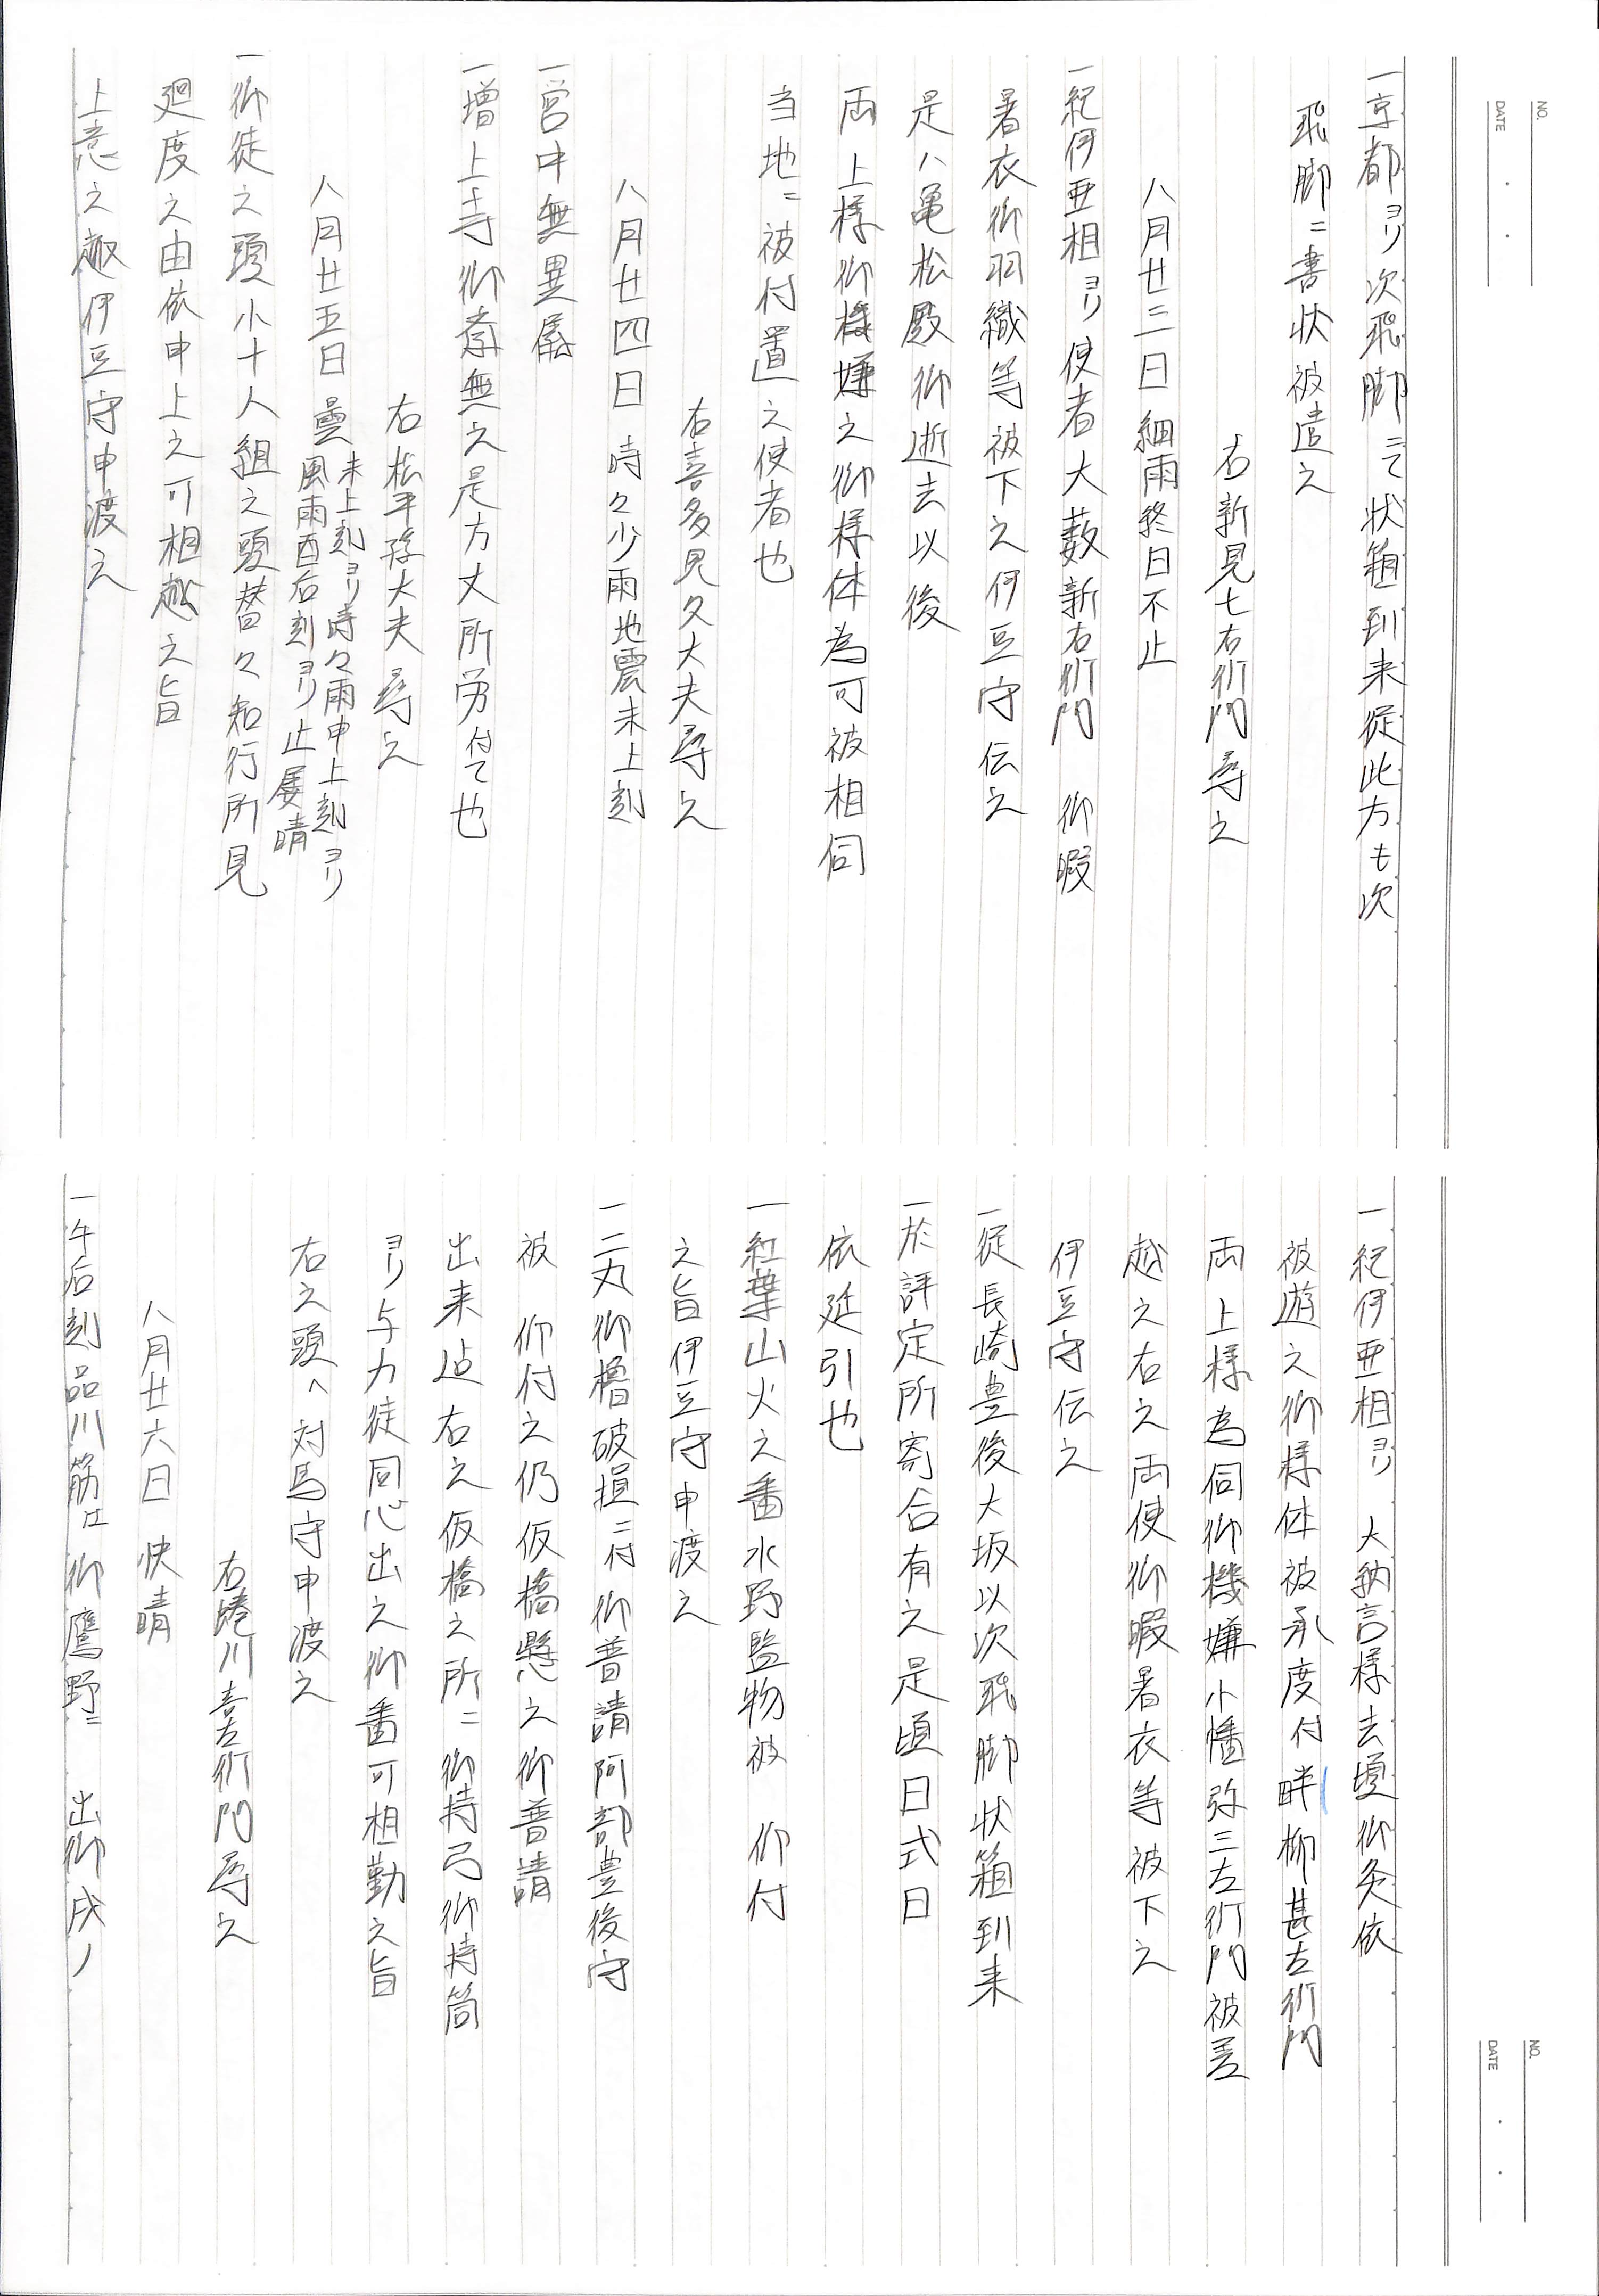 NO.
DATE
一京都ヨリ次飛脚ニて状箱到来従此方も次
飛脚ニ書状被遣之
右新見七右衛門尋之
八月廿三日 細雨終日不止
一紀伊亜相ヨリ使者大薮新右衛門 御暇
暑衣御羽織等被下之伊豆守伝之
是ハ亀松殿御逝去以後
両上様御機嫌之御様体為可被相伺
当地ニ被付置之使者也
右喜多見久大夫尋之
八月廿四日 時々少雨地震未上刻
一営中無異儀
一増上寺御斎無之是方丈所労付て也
右松平孫大夫尋之
八月廿五日 曇 未上刻ヨリ時々雨申上刻ヨリ
風雨酉后刻ヨリ止属晴
一御徒之頭小十人組之頭替々知行所見
廻度之由依申上之可相越之旨
上意之趣伊豆守申渡之
NO.
DATE
一紀伊亜相ヨリ 大納言様去頃御灸依
被遊之御様体被承度付畔柳甚左衛門
両上様為伺御機嫌小幡弥三左衛門被差
越之右之両使御暇暑衣等被下之
伊豆守伝之
一従長崎豊後大坂以次飛脚状箱到来
一於評定所寄合有之是頃日式日
依延引也
一紅葉山火之番水野監物被 仰付
之旨伊豆守申渡之
一二丸御櫓破損ニ付御普請阿部豊後守
被 仰付之仍仮橋懸之御普請
出来迠右之仮橋之所ニ御持弓御持筒
ヨリ与力徒同心出之御番可相勤之旨
右之頭へ対馬守申渡之
右蜷川喜左衛門尋之
八月廿六日 快晴
一午后刻品川筋江御鷹野ニ 出御戌ノ